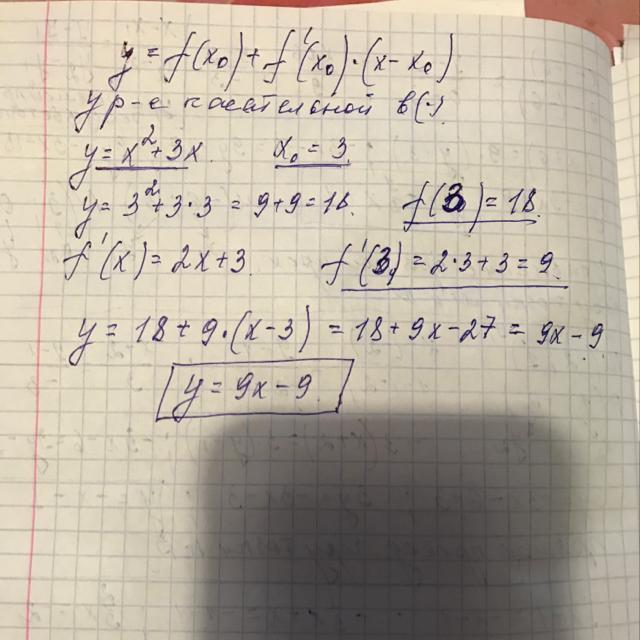 y = f(x₀) + f'(x₀)·(x - x₀)
ур-е касательной в (·)
y = x² + 3x. x₀ = 3.
y = 3² + 3·3 = 9 + 9 = 18. f(3) = 18.
f'(x) = 2x + 3. f'(3) = 2·3 + 3 = 9.
y = 18 + 9·(x - 3) = 18 + 9x - 27 = 9x - 9
y = 9x - 9